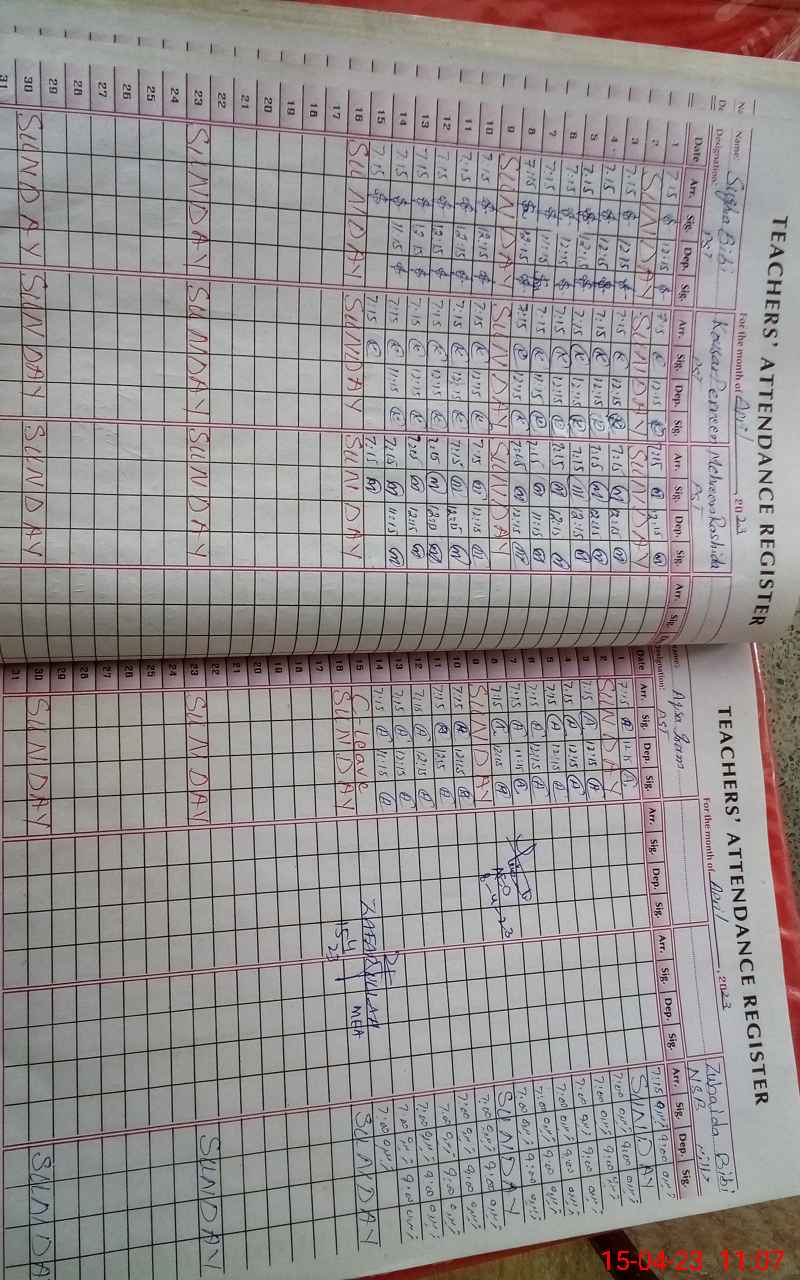 TEACHERS' ATTENDANCE REGISTER
For the month of April, 2023
Name: Sughra Bibi Kousar Perveen Mehreen Rashida
Designation: PST PST PST
Date Arr. Sig. Dep. Sig. Arr. Sig. Dep. Sig. Arr. Sig. Dep. Sig. Arr. Sig.
1 7:15 12:15 7:15 12:15 7:15 12:15
2 SUNDAY SUNDAY SUNDAY
3 7:15 12:15 7:15 12:15 7:15 12:15
4 7:15 12:15 7:15 12:15 7:15 12:15
5 7:15 12:15 7:15 12:15 7:15 12:15
6 7:15 12:15 7:15 12:15 7:15 12:15
7 7:15 11:15 7:15 11:15 7:15 11:15
8 7:15 12:15 7:15 12:15 7:15 12:15
9 SUNDAY SUNDAY SUNDAY
10 7:15 12:15 7:15 12:15 7:15 12:15
11 7:15 12:15 7:15 12:15 7:15 12:15
12 7:15 12:15 7:15 12:15 7:15 12:15
13 7:15 12:15 7:15 12:15 7:15 12:15
14 7:15 11:15 7:15 11:15 7:15 11:15
15 7:15 7:15 7:15
16 SUNDAY SUNDAY SUNDAY
17
18
19
20
21
22
23 SUNDAY SUNDAY SUNDAY
24
25
26
27
28
29
30 SUNDAY SUNDAY SUNDAY
31
TEACHERS' ATTENDANCE REGISTER
For the month of April, 2023
Name: Aqsa Iram Zubaida Bibi
Designation: PST
Date Arr. Sig. Dep. Sig. Arr. Sig. Dep. Sig. Arr. Sig. Dep. Sig. Arr. Sig. Dep. Sig.
1 7:15 12:15 7:15 9:00
2 SUNDAY SUNDAY
3 7:15 12:15 7:00 9:00
4 7:15 12:15 7:00 9:00
5 7:15 12:15 7:00 9:00
6 7:15 12:15 7:00 9:00
7 7:15 11:15 7:00 9:00
8 7:15 12:15 7:00 9:00
9 SUNDAY SUNDAY
10 7:15 12:15 7:00 9:00
11 7:15 12:15 7:00 9:00
12 7:15 12:15 7:00 9:00
13 7:15 12:15 7:00 9:00
14 7:15 11:15 7:00 9:00
15 C-leave ZAFARULLAH MEA 7:00
16 SUNDAY 15 4 23 SUNDAY
17
18
19
20
21
22
23 SUNDAY SUNDAY
24
25
26
27
28
29
30 SUNDAY SUNDAY
31
15-04-23 11:07